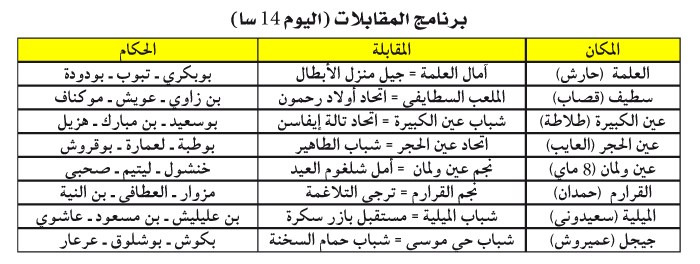 برنامج المقابلات (اليوم 14 سا)
المكان المقابلة الحكام
العلمة (حارش) آمال العلمة = جيل منزل الأبطال بوبكري ـ تبوب ـ بودودة
سطيف (قصاب) الملعب السطايفي = اتحاد أولاد رحمون بن زاوي ـ عويش ـ موكناف
عين الكبيرة (طلاطة) شباب عين الكبيرة = اتحاد تالة إيفاسن بوسعيد ـ بن مبارك ـ هزيل
عين الحجر (العايب) اتحاد عين الحجر = شباب الطاهير بوطبة ـ لعمارة ـ بوقروش
عين ولمان (8 ماي) نجم عين ولمان = أمل شلغوم العيد خنشول ـ ليتيم ـ صحبي
القرارم (حمدان) نجم القرارم = ترجي التلاغمة مزوار ـ العطافي ـ بن النية
الميلية (سعيدوني) شباب الميلية = مستقبل بازر سكرة بن عليليش ـ بن مسعود ـ عاشوي
جيجل (عميروش) شباب حي موسى = شباب حمام السخنة بكوش ـ بوشلوق ـ عرعار